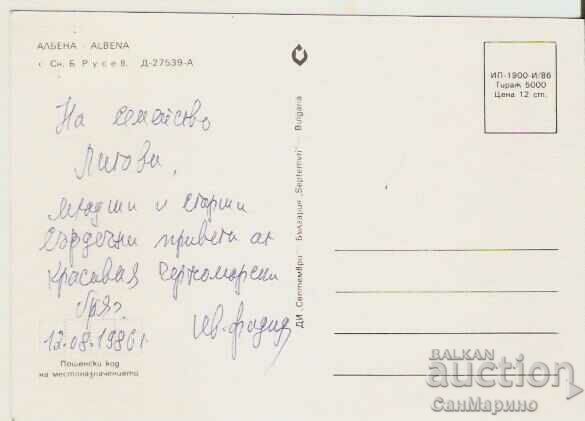 АЛБЕНА - ALBENA
Сн. Б. Русев. Д-27539-А
На семейство
Литови,
младши и старши
сърдечни привети от
красивия Черноморски
бряг
12.08.1986 г.
Пощенски код
на местоназначението
ДИ „Септември" България „Septemvri" — Bulgaria
ИП-1900-И/86
Тираж 5000
Цена 12 ст.
BALKAN
auction
СанМарино